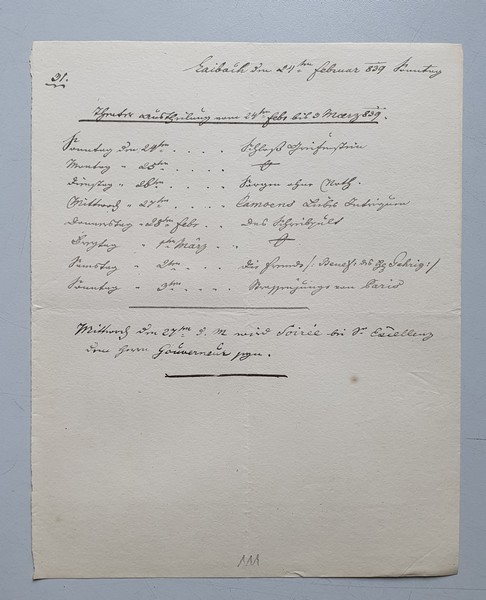 31.
Laibach den 24ten Februar 839 Sonntag
Theater Austheilung vom 24ten Febr bis 3 März 839.
Sonntag den 24ten . . . . Schloß Greifenstein
Montag " 25ten . . . .
Dienstag " 26ten . . . . Sorgen ohne Noth.
Mittwoch " 27ten . . . . Camoens Liebe Intriguen
Donnerstag " 28ten Febr . . Das Schreibpult
Freytag " 1ten März . .
Samstag " 2ten . . . . Die Fremde /: Benef: des :/
Sonntag " 3ten . . . . von Paris
Mittwoch den 27ten d. M wird Soirée bei Sr Excellenz
dem Herrn Gouverneur seyn.
111